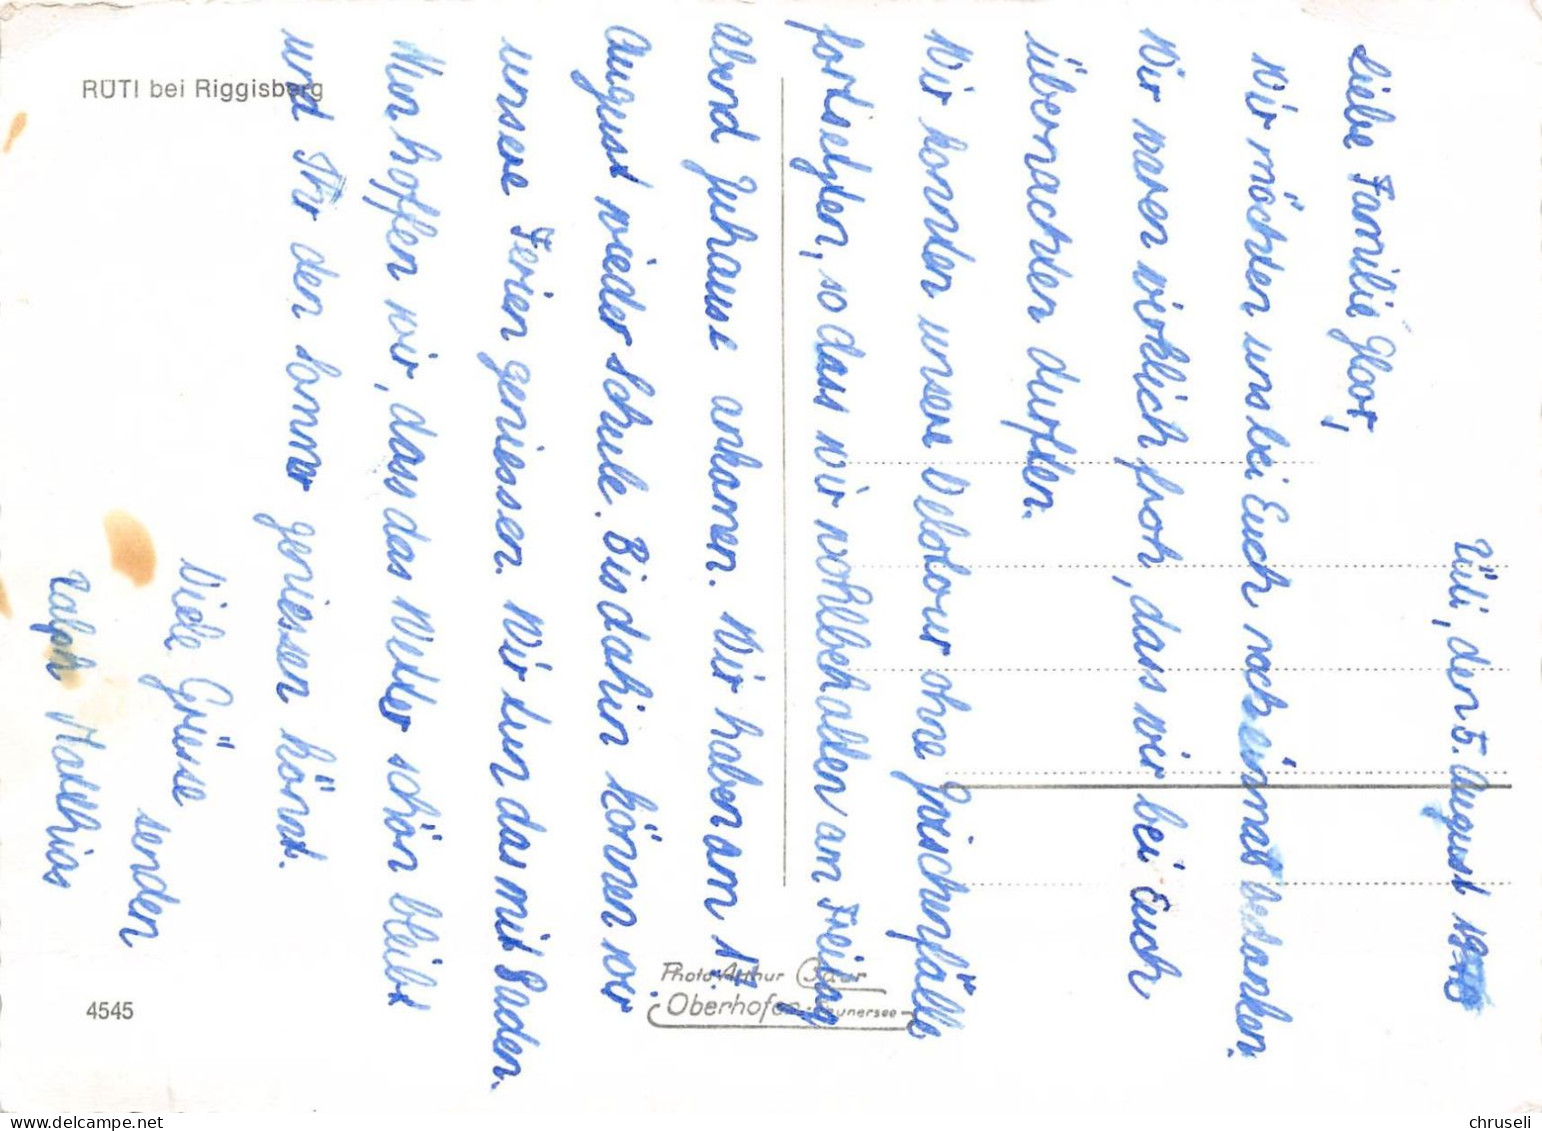 RÜTI bei Riggisberg
Rüti, den 5. August
Liebe Familie Gloor,
Wir möchten uns bei Euch noch einmal bedanken.
Wir waren wirklich froh, dass wir bei Euch
übernachten durften.
Wir konnten unsere Velotour ohne Zwischenfälle
fortsetzten, so dass wir wohlbehalten am Freitag
abend Zuhause ankamen. Wir haben am 17.
August wieder Schule. Bis dahin können wir
unsere Ferien geniessen. Wir tun das mit Baden.
Nun hoffen wir, dass das Wetter schön bleibt
und Ihr den Sommer geniessen könnt.
Viele Grüsse
senden
Ralph Matthias
Photo Arthur Baur
Oberhofen Thunersee
4545
chruseli